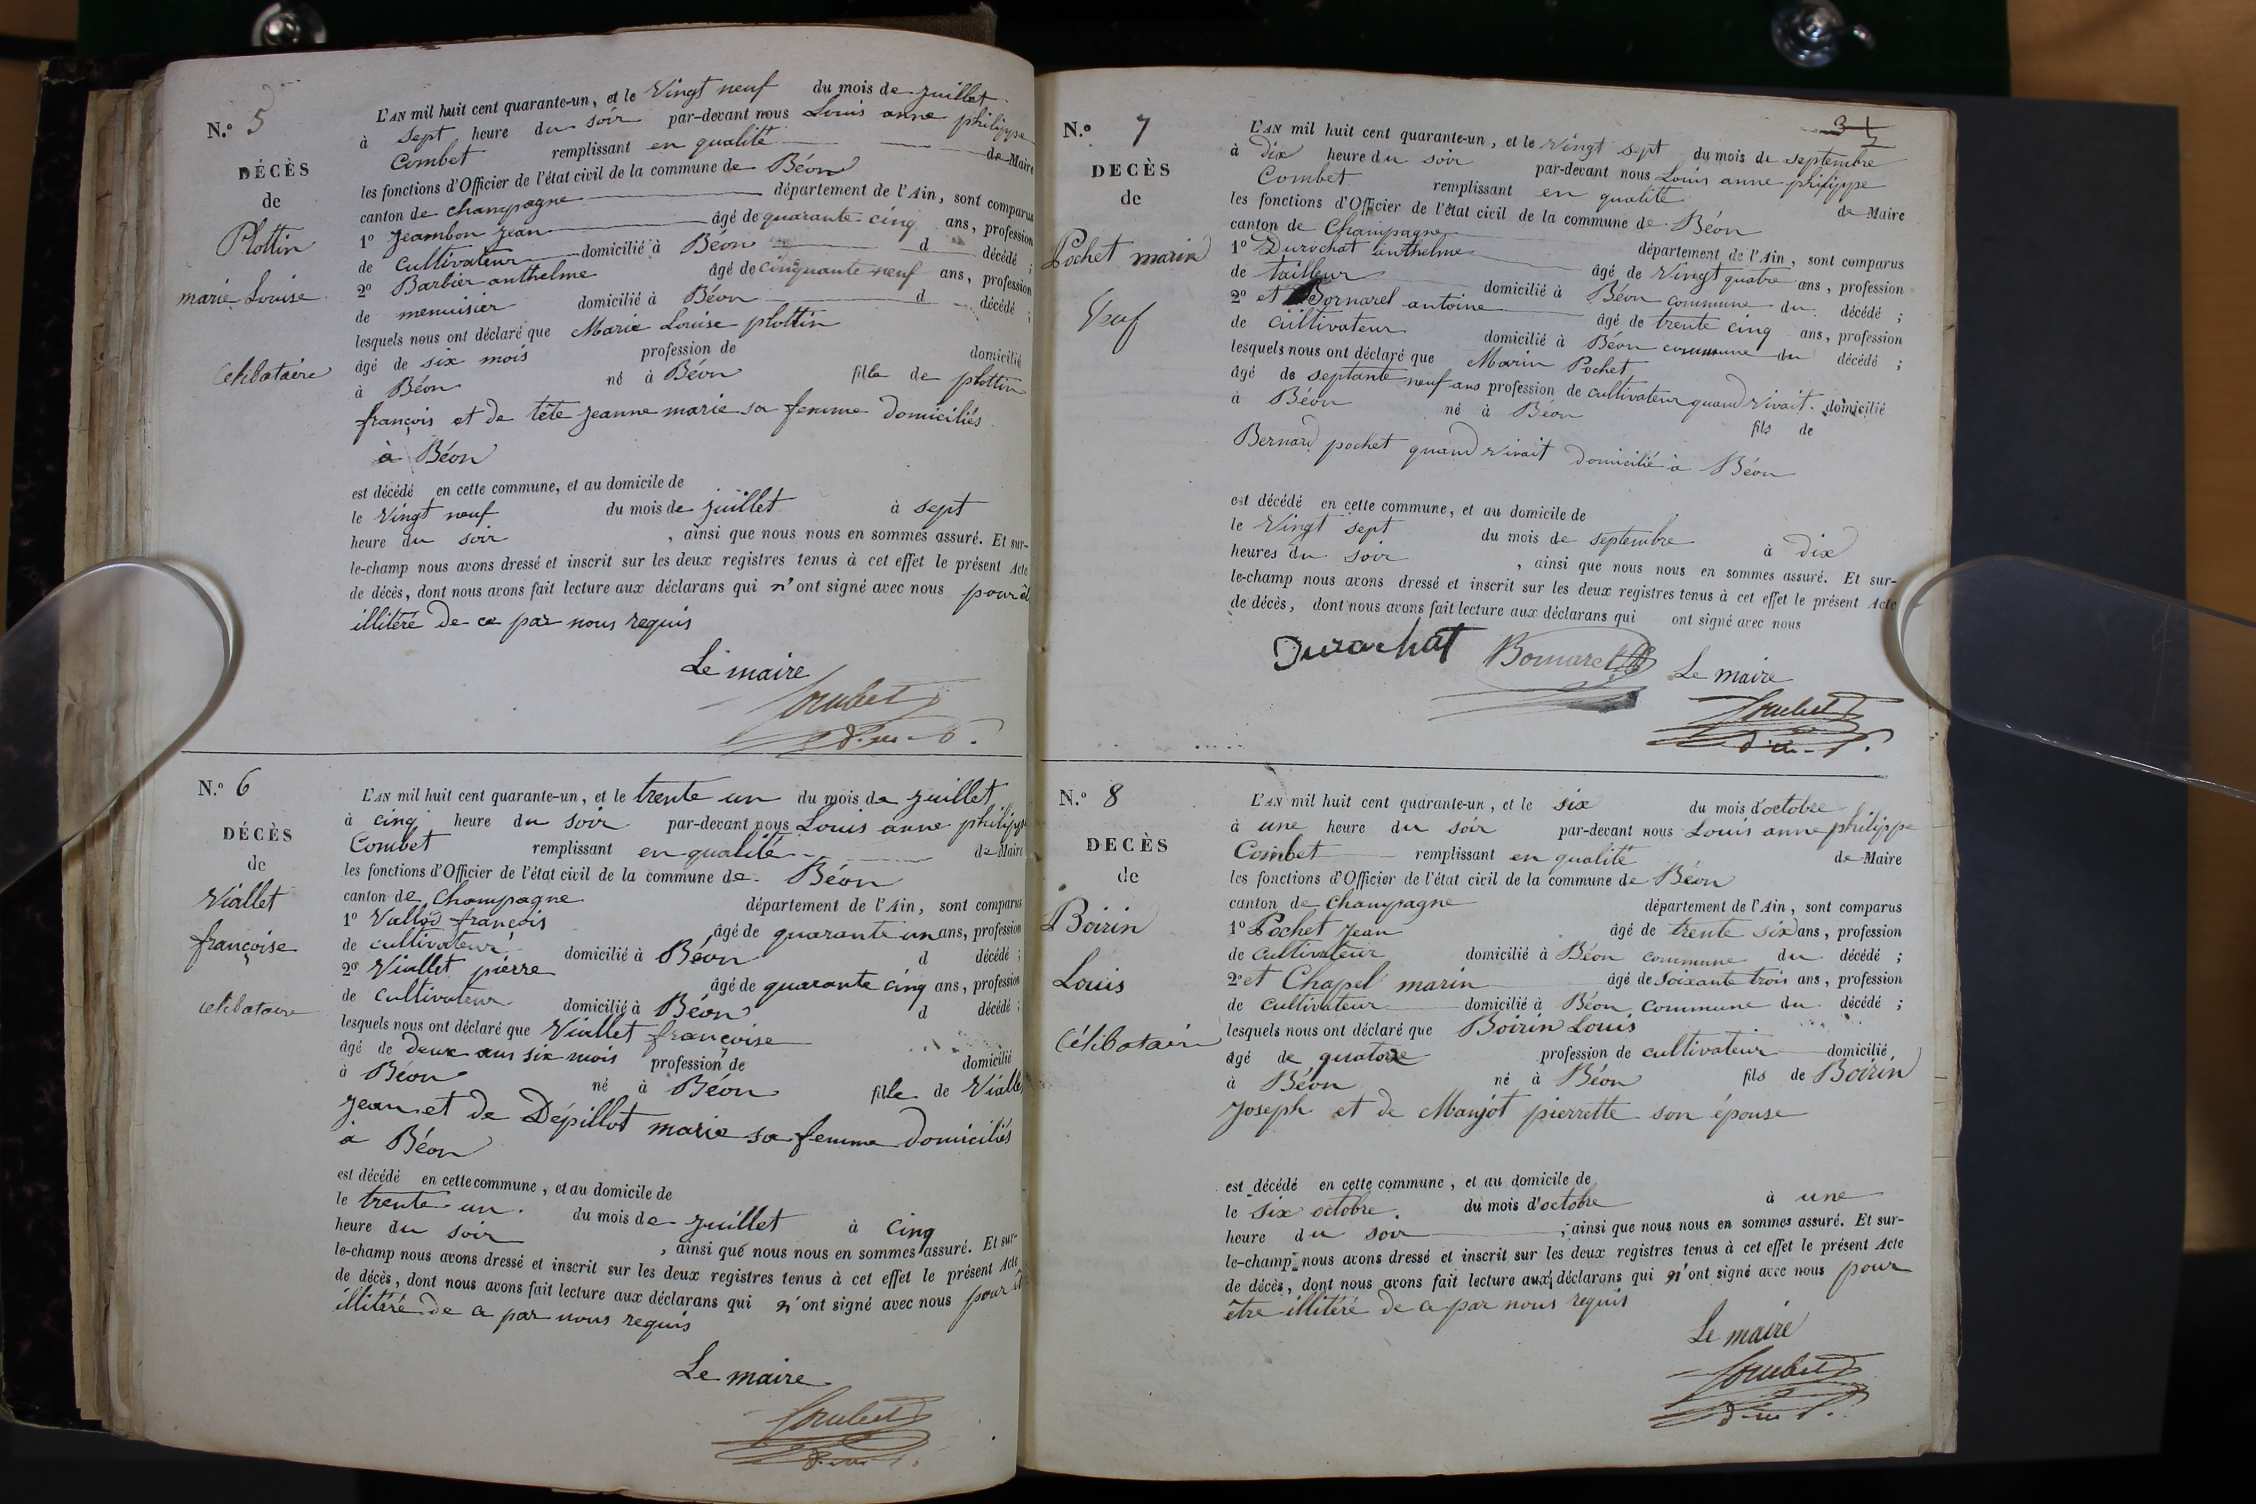 N.º 5
DÉCÈS
de
Plottin
marie Louise
célibataire
L'AN mil huit cent quarante-un, et le Vingt neuf du mois de juillet
à sept heure du soir par-devant nous Louis anne philippe
Combet remplissant en qualité de Maire
les fonctions d'Officier de l'état civil de la commune de Béon
canton de champagne département de l'Ain, sont comparus
1º Jeambon jean âgé de quarante cinq ans, profession
de cultivateur domicilié à Béon d décédé ;
2º Barbier anthelme âgé de cinquante neuf ans, profession
de menuisier domicilié à Béon d décédé ;
lesquels nous ont déclaré que Marie Louise plottin
âgé de six mois profession de domicilié
à Béon né à Béon fille de plottin
françois et de tête jeanne marie sa femme domiciliés
à Béon
est décédé en cette commune, et au domicile de
le Vingt neuf du mois de juillet à sept
heure du soir , ainsi que nous nous en sommes assuré. Et sur-
le-champ nous avons dressé et inscrit sur les deux registres tenus à cet effet le présent Acte
de décès, dont nous avons fait lecture aux déclarans qui n'ont signé avec nous pour
illitéré de ce par nous requis
Le maire
Combet
N.º 6
DÉCÈS
de
Viallet
françoise
célibataire
L'AN mil huit cent quarante-un, et le trente un du mois de juillet
à cinq heure du soir par-devant nous Louis anne philippe
Combet remplissant en qualité de Maire
les fonctions d'Officier de l'état civil de la commune de Béon
canton de Champagne département de l'Ain, sont comparus
1º Vallod françois âgé de quarante un ans, profession
de cultivateur domicilié à Béon d décédé ;
2º Viallet pierre âgé de quarante cinq ans, profession
de cultivateur domicilié à Béon d décédé ;
lesquels nous ont déclaré que Viallet françoise
âgé de deux ans six mois profession de domicilié
à Béon né à Béon fille de Viallet
jean et de Dépillot marie sa femme domiciliés
à Béon
est décédé en cette commune, et au domicile de
le trente un du mois de juillet à cinq
heure du soir , ainsi que nous nous en sommes assuré. Et sur-
le-champ nous avons dressé et inscrit sur les deux registres tenus à cet effet le présent Acte
de décès, dont nous avons fait lecture aux déclarans qui n'ont signé avec nous pour
illitéré de ce par nous requis
Le maire
Combet
N.º 7
DECÈS
de
Pochet marin
Veuf
L'AN mil huit cent quarante-un, et le Vingt sept du mois de septembre
à dix heure du soir par-devant nous Louis anne philippe
Combet remplissant en qualité de Maire
les fonctions d'Officier de l'état civil de la commune de Béon
canton de Champagne département de l'Ain, sont comparus
1º Durochat anthelme âgé de Vingt quatre ans, profession
de tailleur domicilié à Béon commune du décédé ;
2º et Bornarel antoine âgé de trente cinq ans, profession
de cultivateur domicilié à Béon commune du décédé ;
lesquels nous ont déclaré que Marin Pochet
âgé de septante neuf ans profession de cultivateur quand vivait domicilié
à Béon né à Béon fils de
Bernard pochet quand vivait domicilié à Béon
est décédé en cette commune, et au domicile de
le Vingt sept du mois de septembre à dix
heures du soir , ainsi que nous nous en sommes assuré. Et sur-
le-champ nous avons dressé et inscrit sur les deux registres tenus à cet effet le présent Acte
de décès, dont nous avons fait lecture aux déclarans qui ont signé avec nous
Durochat Bornarel Le maire
Combet
N.º 8
DECÈS
de
Boirin
Louis
Célibataire
L'AN mil huit cent quarante-un, et le six du mois d'octobre
à une heure du soir par-devant nous Louis anne philippe
Combet remplissant en qualité de Maire
les fonctions d'Officier de l'état civil de la commune de Béon
canton de Champagne département de l'Ain, sont comparus
1º Pochet jean âgé de trente six ans, profession
de cultivateur domicilié à Béon commune du décédé ;
2º et Chapel marin âgé de soixante trois ans, profession
de cultivateur domicilié à Béon commune du décédé ;
lesquels nous ont déclaré que Boirin Louis
âgé de quatorze profession de cultivateur domicilié
à Béon né à Béon fils de Boirin
joseph et de Manjot pierrette son épouse
est décédé en cette commune, et au domicile de
le six octobre du mois d'octobre à une
heure du soir , ainsi que nous nous en sommes assuré. Et sur-
le-champ nous avons dressé et inscrit sur les deux registres tenus à cet effet le présent Acte
de décès, dont nous avons fait lecture aux déclarans qui n'ont signé avec nous pour
être illitéré de ce par nous requis
Le maire
Combet